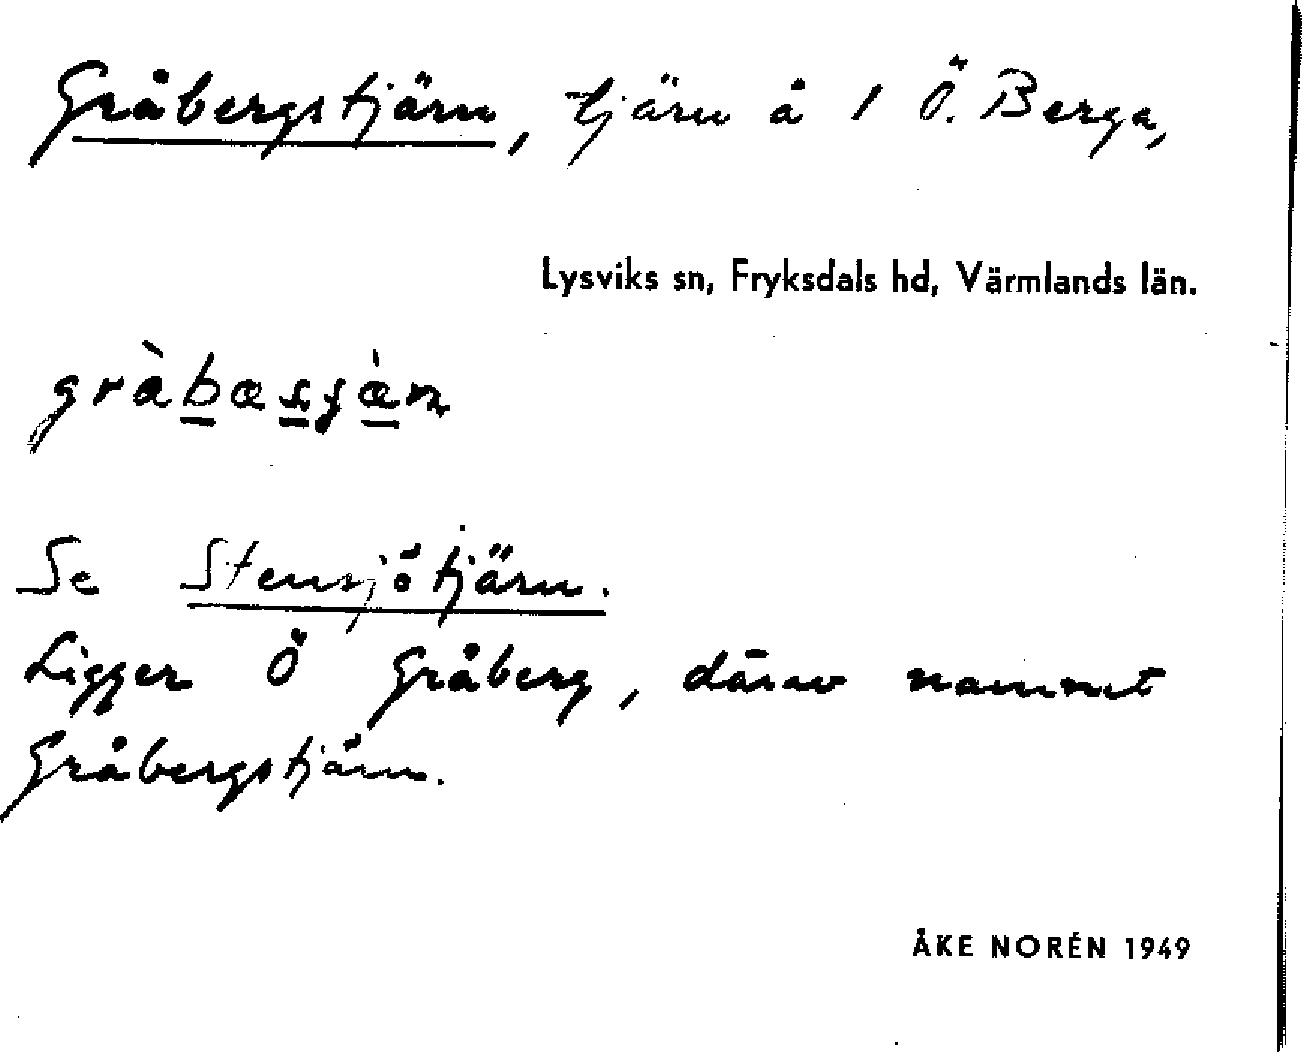 Gråbergstjärn, tjärn å 1 Ö. Berga,
Lysviks sn, Fryksdals hd, Värmlands län.
Se Stensjötjärn.
Ligger Ö Gråberg, därav namnet
Gråbergstjärn.
ÅKE NORÉN 1949